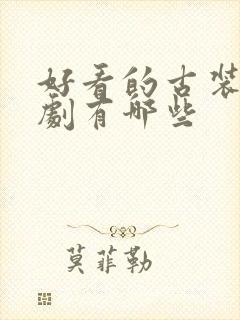 好看的古装
劇有哪些
莫菲勒